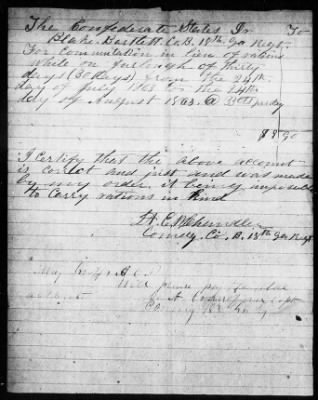 The Confederate States Dr. To
Blake Bartlett. Co. B. 18th Ga Regt.
For Commutation in lieu of rations
while on furlough of thirty
days (30 days) from the 24th
day of July 1863 to the 24th
day of August 1863. @ 33cts per day
$9.90
I certify that the above account
is correct and just and was made
by my order it being imposible
to carry rations in kind
Lt. E. W. Chandler
Comdg. Co. B. 18th Ga Regt
Will please pay